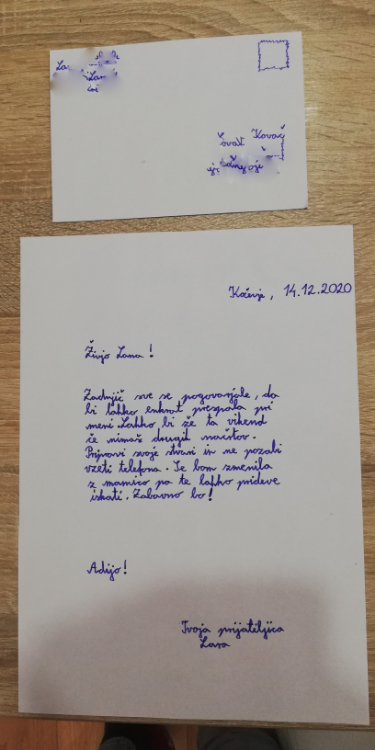 Kovač
Kočevje, 14.12.2020
Živjo Lana!
Zadnjič sve se pogovarjale, da
bi lahko enkrat prespala pri
meni. Lahko bi že ta vikend
če nimaš drugih načrtov.
Pripravi svoje stvari in ne pozabi
vzeti telefona. Se bom zmenila
z mamico pa te lahko prideve
iskati. Zabavno bo!
Adijo!
Tvoja prijateljica
Lara